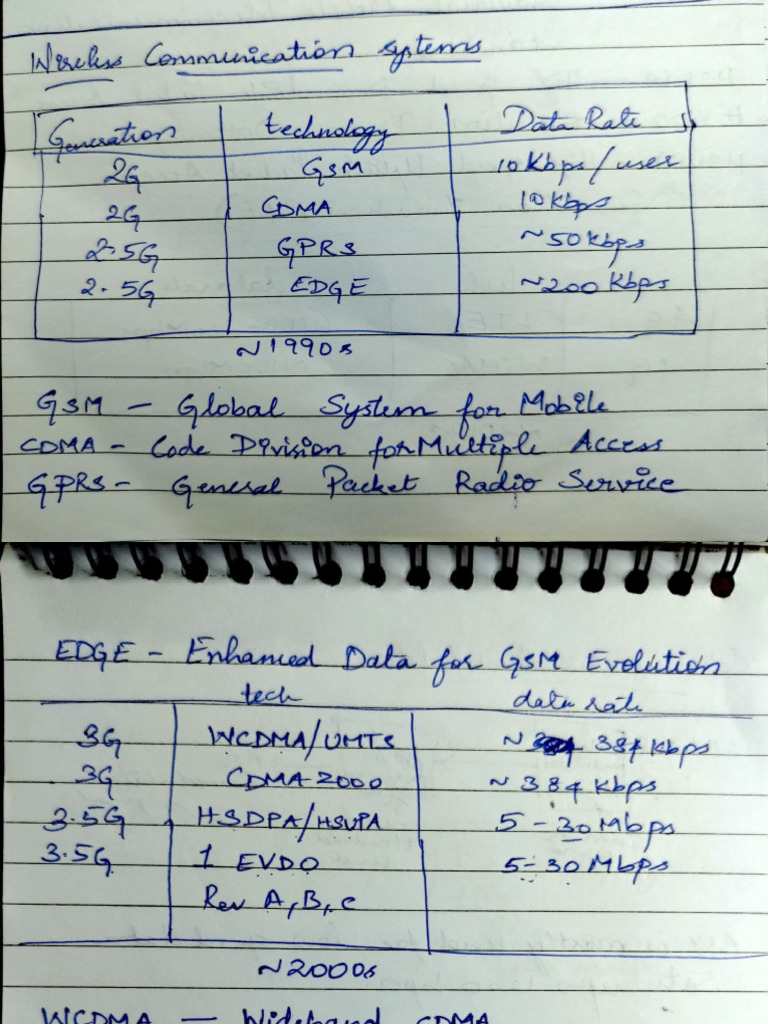 Wireless Communication systems
Generation technology Data Rate
2G GSM 10 Kbps/user
2G CDMA 10 Kbps
2.5G GPRS ~50 Kbps
2.5G EDGE ~200 Kbps
~1990s
GSM - Global System for Mobile
CDMA - Code Division for Multiple Access
GPRS - General Packet Radio Service
EDGE - Enhanced Data for GSM Evolution
tech data rate
3G WCDMA/UMTS ~ 384 Kbps
3G CDMA 2000 ~ 384 Kbps
3.5G HSDPA/HSUPA 5 - 30 Mbps
3.5G 1 EVDO 5 - 30 Mbps
Rev A, B, C
~2000s
WCDMA - Wideband CDMA